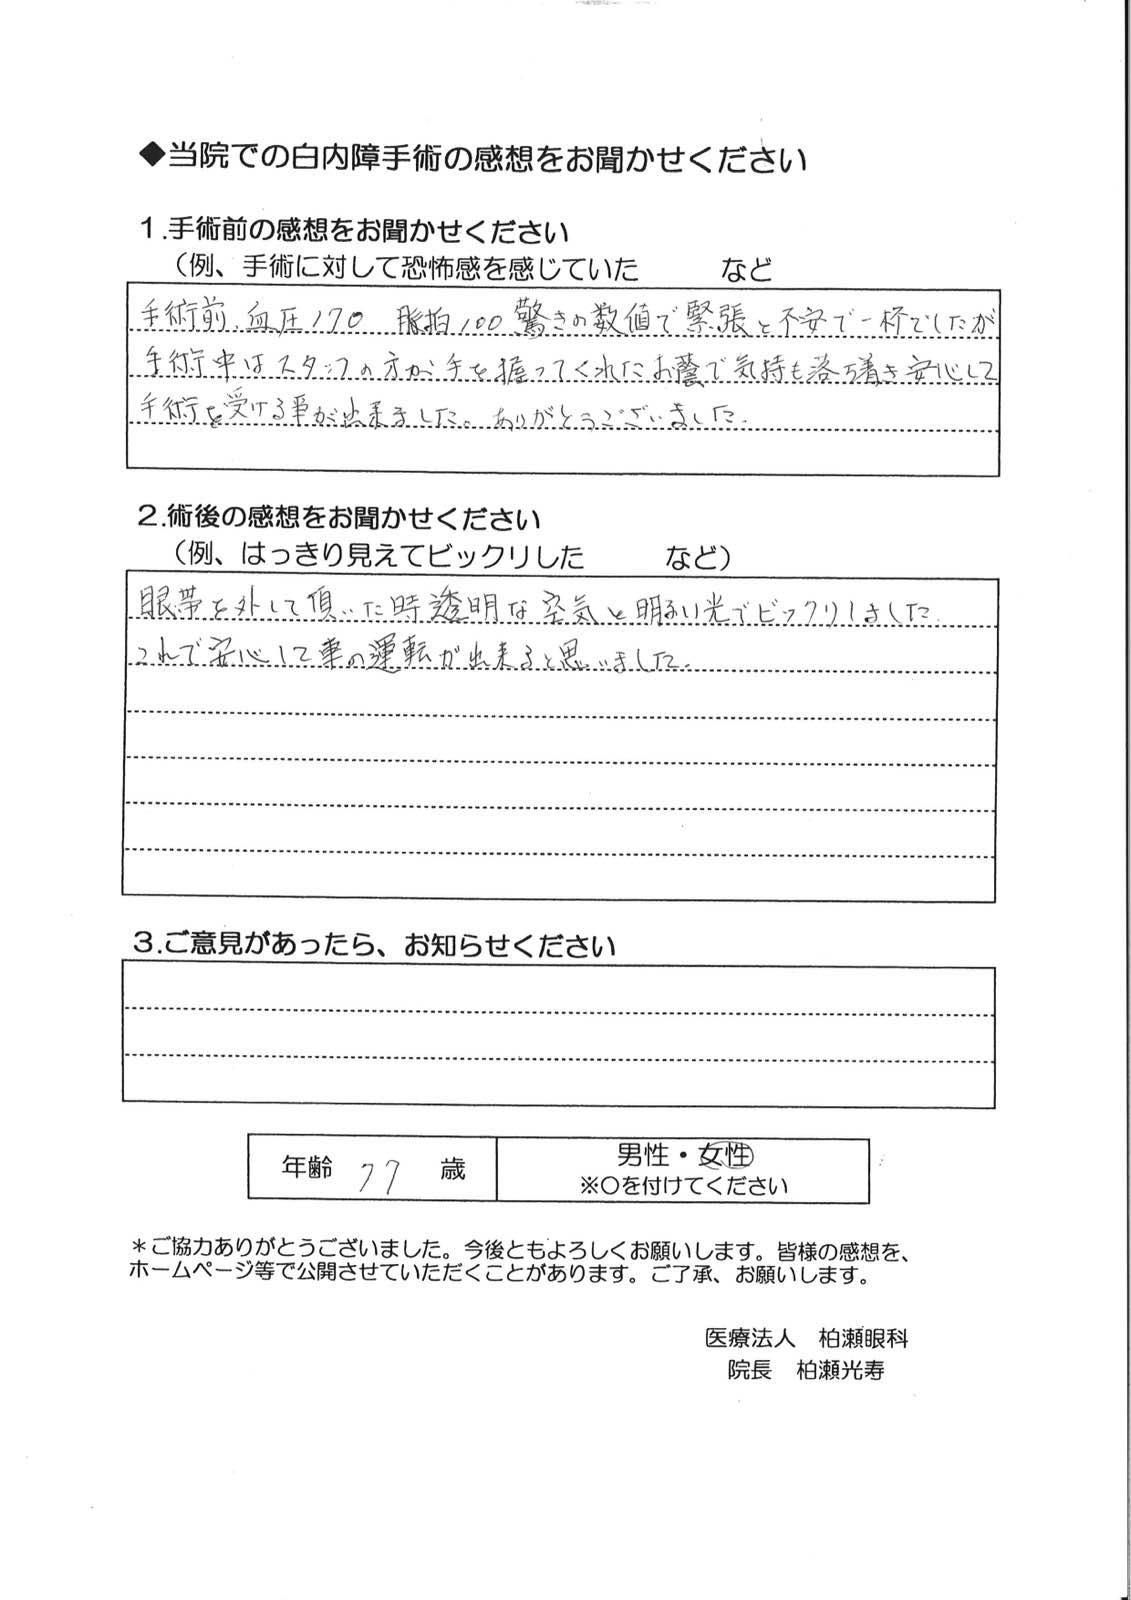 ◆当院での白内障手術の感想をお聞かせください
1.手術前の感想をお聞かせください
（例、手術に対して恐怖感を感じていた　　　など
手術前、血圧170　脈拍100驚きの数値で緊張と不安で一杯でしたが
手術中はスタッフの方が手を握ってくれたお蔭で気持も落ち着き安心して
手術を受ける事が出来ました。ありがとうございました.
2.術後の感想をお聞かせください
（例、はっきり見えてビックリした　　　など）
眼帯を外して頂いた時透明な空気と明るい光でビックリしました.
これで安心して車の運転が出来ると思いました.
3.ご意見があったら、お知らせください
年齢　77　歳
男性・女性
※〇を付けてください
＊ご協力ありがとうございました。今後ともよろしくお願いします。皆様の感想を、
ホームページ等で公開させていただくことがあります。ご了承、お願いします。
医療法人　柏瀬眼科
院長　柏瀬光寿